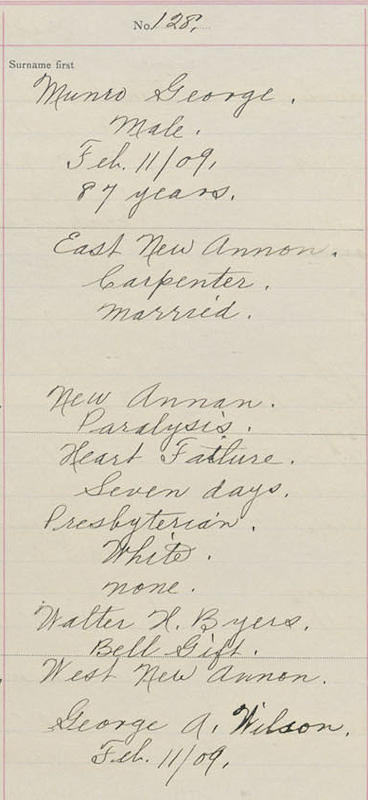 No. 128.
Surname first
Munro George.
Male.
Feb. 11/09.
87 years.
East New Annon.
Carpenter.
Married.
New Annan.
Paralysis.
Heart Failure.
Seven days.
Presbyterian.
White.
none.
Walter H. Byers.
Bell Gift.
West New Annon.
George A. Wilson.
Feb. 11/09.